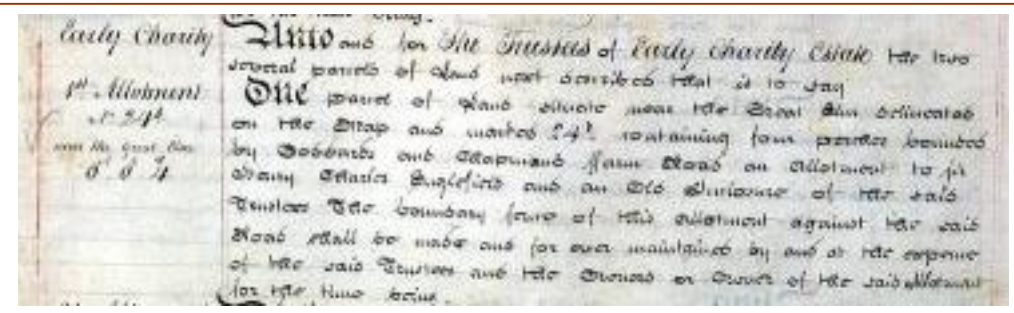 Early Charity
1st Allotment
near the Great Elm
0 0 4
Unto and for The Trustees of Early Charity Estate the two
several parcels of Land next described that is to say
One parcel of Land situate near the Great Elm delineated
on the Map and marked 24b containing four perches bounded
by Gobbards and Chapmans Farm Road an Allotment to Sir
Henry Charles Englefield and an Old Inclosure of the said
Trustees The boundary fence of this Allotment against the said
Road shall be made and for ever maintained by and at the expence
of the said Trustees and the Owners or Owner of the said Allotment
for the time being.